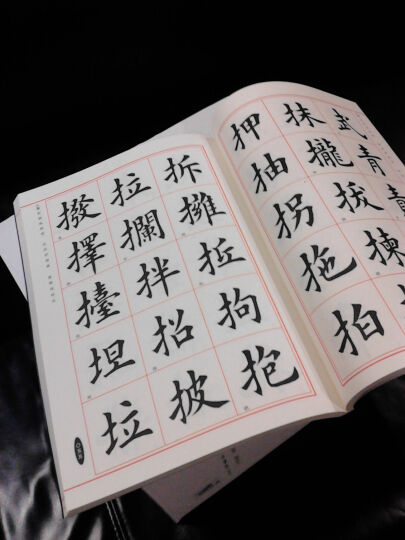 武青
抹攏拔揀
押抽拐拖拍
拆擁抵拘抱
拉攔拌招披
撥擇擡坦垃